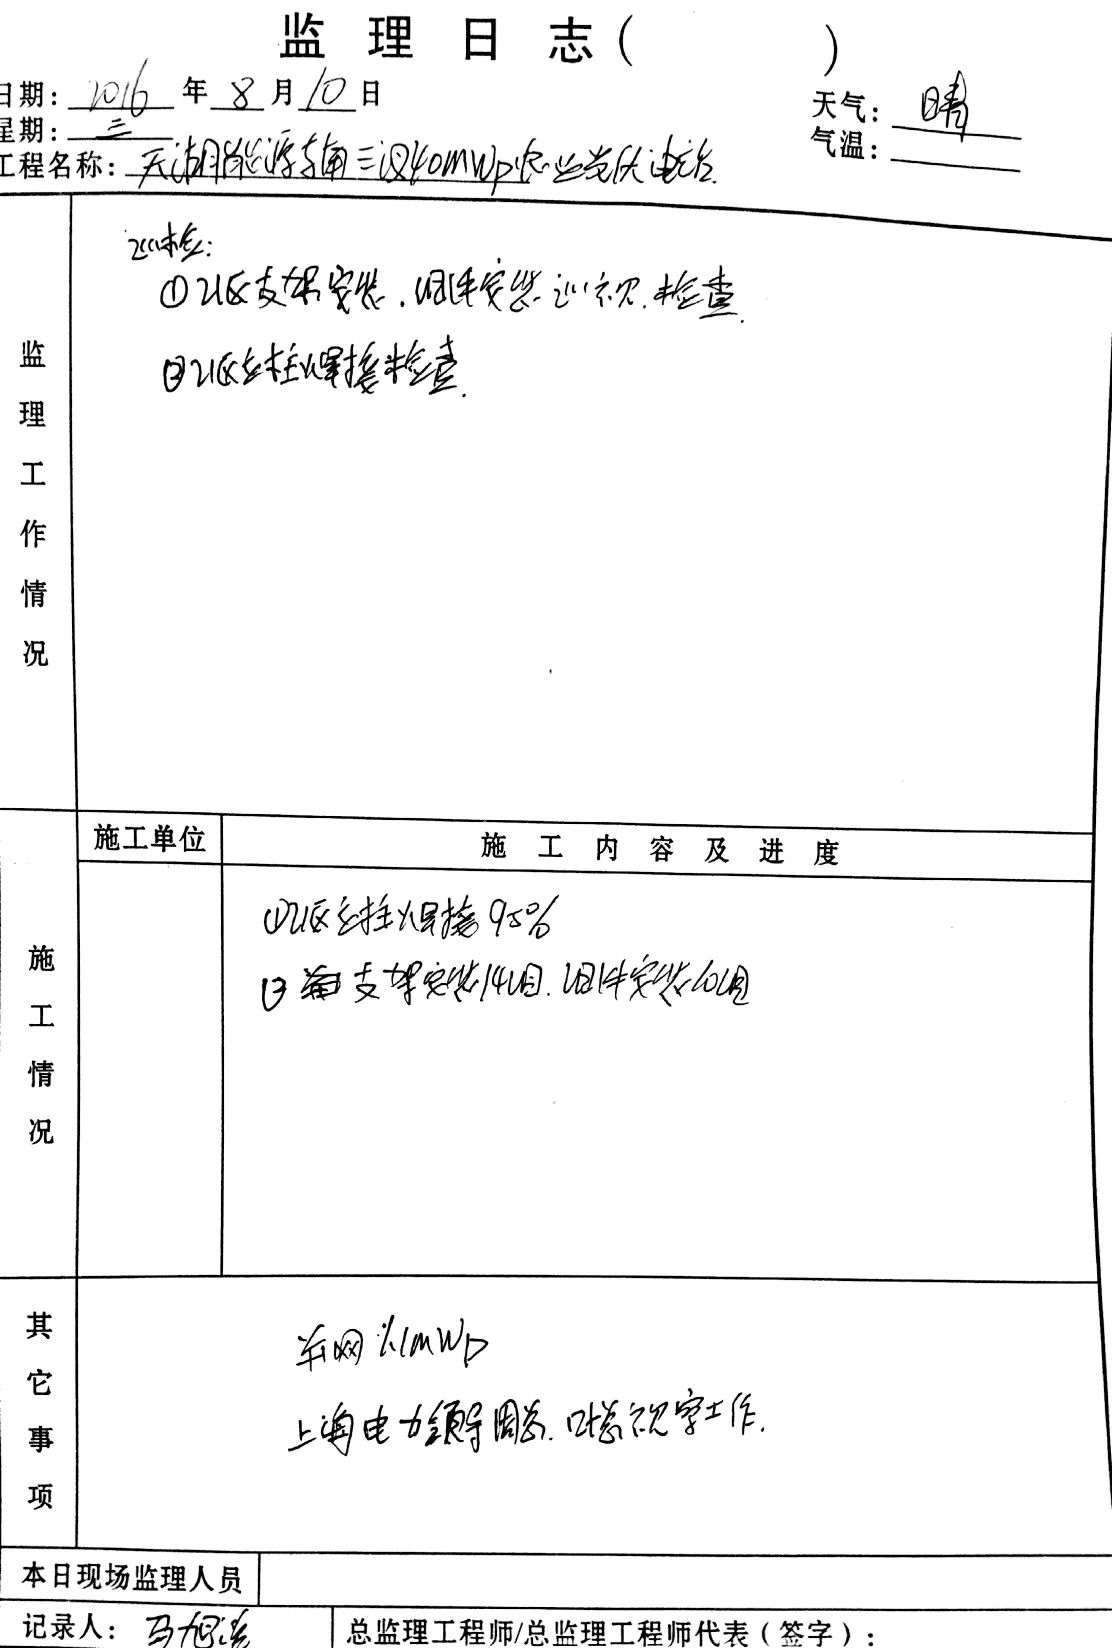 监理日志( )
日期: 2016 年 8 月 10 日
天气: 晴
星期: 三
气温:
工程名称: 天湖 三 40MWp 农业光伏电站
巡检:
①21区支架安装、组件安装巡视检查.
②21区立柱焊接检查.
监理工作情况
施工单位
施工内容及进度
①21区立柱焊接95%
② 支架安装14组.组件安装10组
施工情况
并网 1MWp
上海电力领导周总.叶总视察工作.
其它事项
本日现场监理人员
记录人: 马旭
总监理工程师/总监理工程师代表(签字):